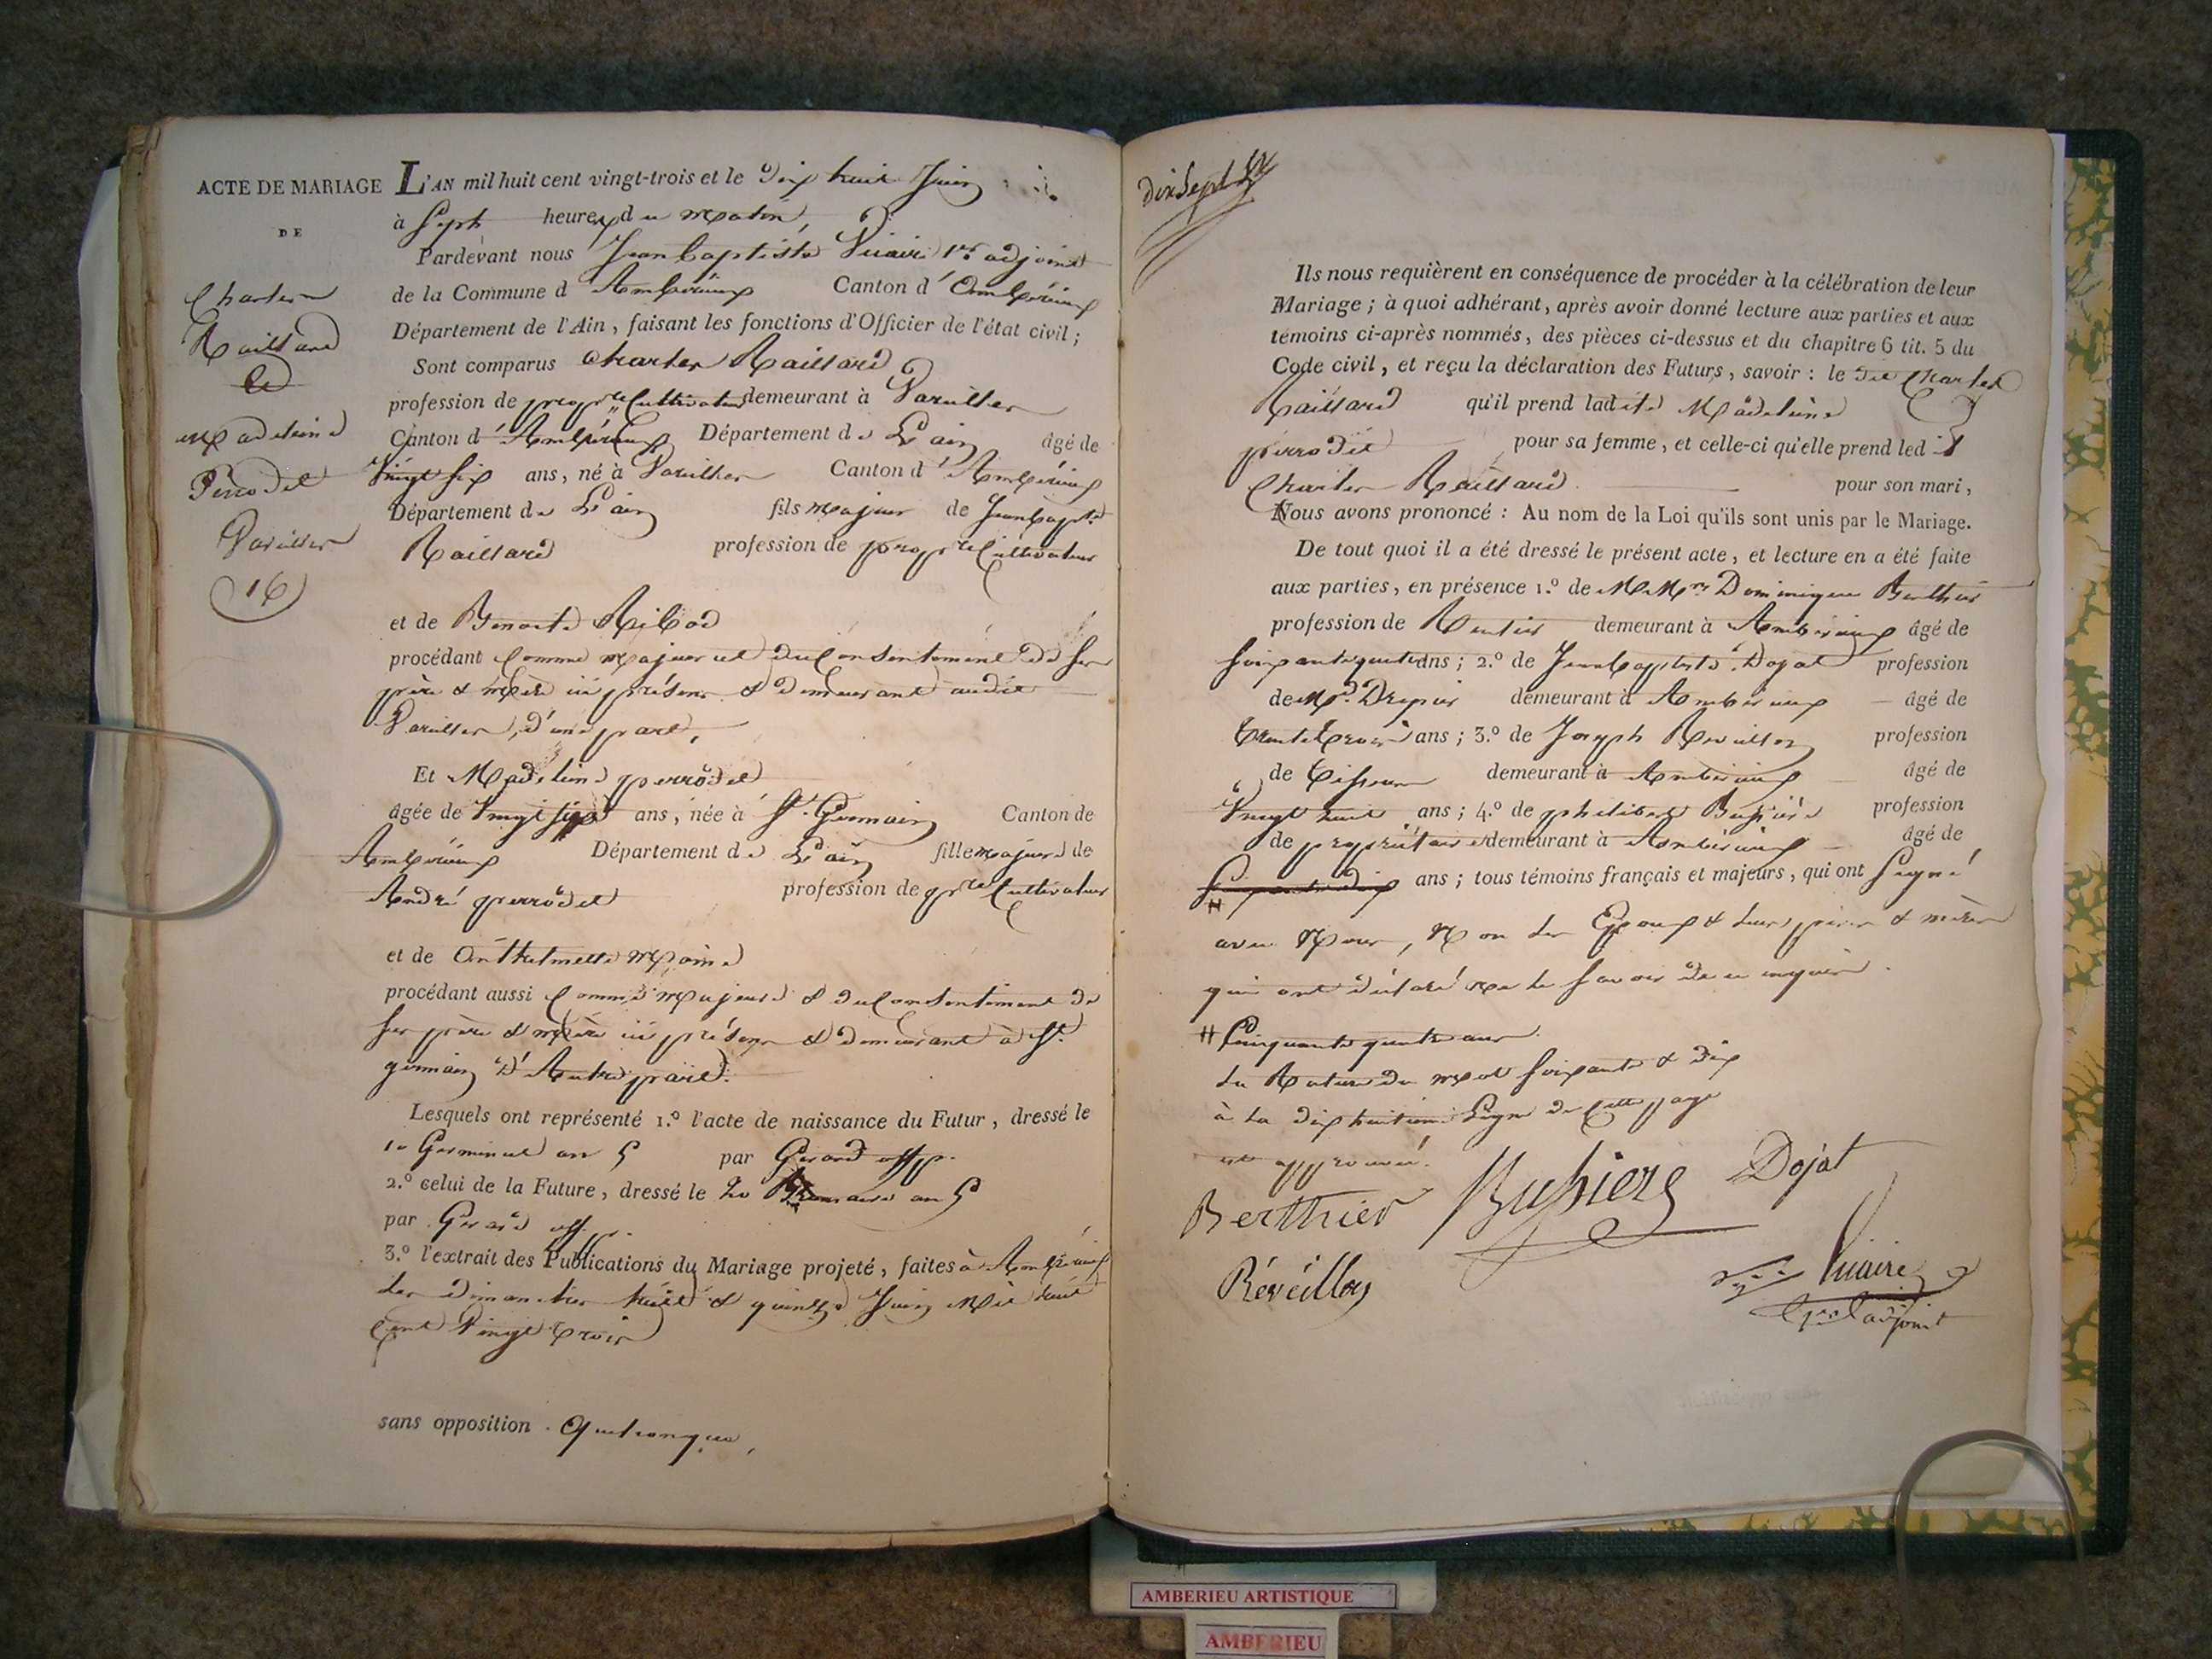 ACTE DE MARIAGE
DE
Charles
Raillard
et
Madeleine
Perrodet
Vareilles
(16)
L'AN mil huit cent vingt-trois et le dix huit Juin
à Sept heures du matin,
Pardevant nous Jean Baptiste Vicaire 1er adjoint
de la Commune d'Ambérieux Canton d'Ambérieux
Département de l'Ain, faisant les fonctions d'Officier de l'état civil;
Sont comparus Charles Raillard
profession de propre Cultivateur demeurant à Vareilles
Canton d'Ambérieux Département de L'ain âgé de
Vingt six ans, né à Vareilles Canton d'Ambérieux
Département de L'ain fils majeur de Jean Bapte
Raillard profession de propre Cultivateur
et de Benoite Ribod
procédant Comme majeur et du Consentement de ses
père & mère ici présens & demeurant audit
Vareilles, d'une part,
Et Madeleine perrodet
âgée de Vingt six ans, née à St. Germain Canton de
Ambérieux Département de L'ain fille majeure de
André perrodet profession de pre Cultivateur
et de Anthelmette moine
procédant aussi Comme majeure & du Consentement de
ses père & mère ici présens & demeurant à St.
germain D'Autre part.
Lesquels ont représenté 1.º l'acte de naissance du Futur, dressé le
10 Germinal an 5 par Gerard offp.
2.º celui de la Future, dressé le an 5
par Gerard offp.
3.º l'extrait des Publications du Mariage projeté, faites à Ambérieux
les dimanches huit & quinze Juin Mil huit
Cent Vingt trois
sans opposition. Quelconque,
Dix Sept
Ils nous requièrent en conséquence de procéder à la célébration de leur
Mariage; à quoi adhérant, après avoir donné lecture aux parties et aux
témoins ci-après nommés, des pièces ci-dessus et du chapitre 6 tit. 5 du
Code civil, et reçu la déclaration des Futurs, savoir: le dit Charles
Raillard qu'il prend ladite Madeleine
perrodet pour sa femme, et celle-ci qu'elle prend ledit
Charles Raillard pour son mari,
Nous avons prononcé: Au nom de la Loi qu'ils sont unis par le Mariage.
De tout quoi il a été dressé le présent acte, et lecture en a été faite
aux parties, en présence 1.º de Dominique Berthier
profession de Rentier demeurant à Ambérieux âgé de
soixante quatre ans; 2.º de Jean Baptiste Dojat profession
de Md. Drapier demeurant à Ambérieux âgé de
trente trois ans; 3.º de Joseph Reveillon profession
de tisseur demeurant à Ambérieux âgé de
Vingt huit ans; 4.º de philibert Bussière profession
de propriétaire demeurant à Ambérieux âgé de
Soixante dix ans; tous témoins français et majeurs, qui ont Signé
avec Nous, Non les Epoux & leurs pères & mères
qui ont déclaré ne le savoir de ce enquis.
# Cinquante quatre ans.
La Rature du mot soixante & dix
à la dix huitieme Ligne de Cette page
est approuvée.
Berthier Bussiere Dojat
Réveillon Vicaire
adjoint
AMBERIEU ARTISTIQUE
AMBERIEU